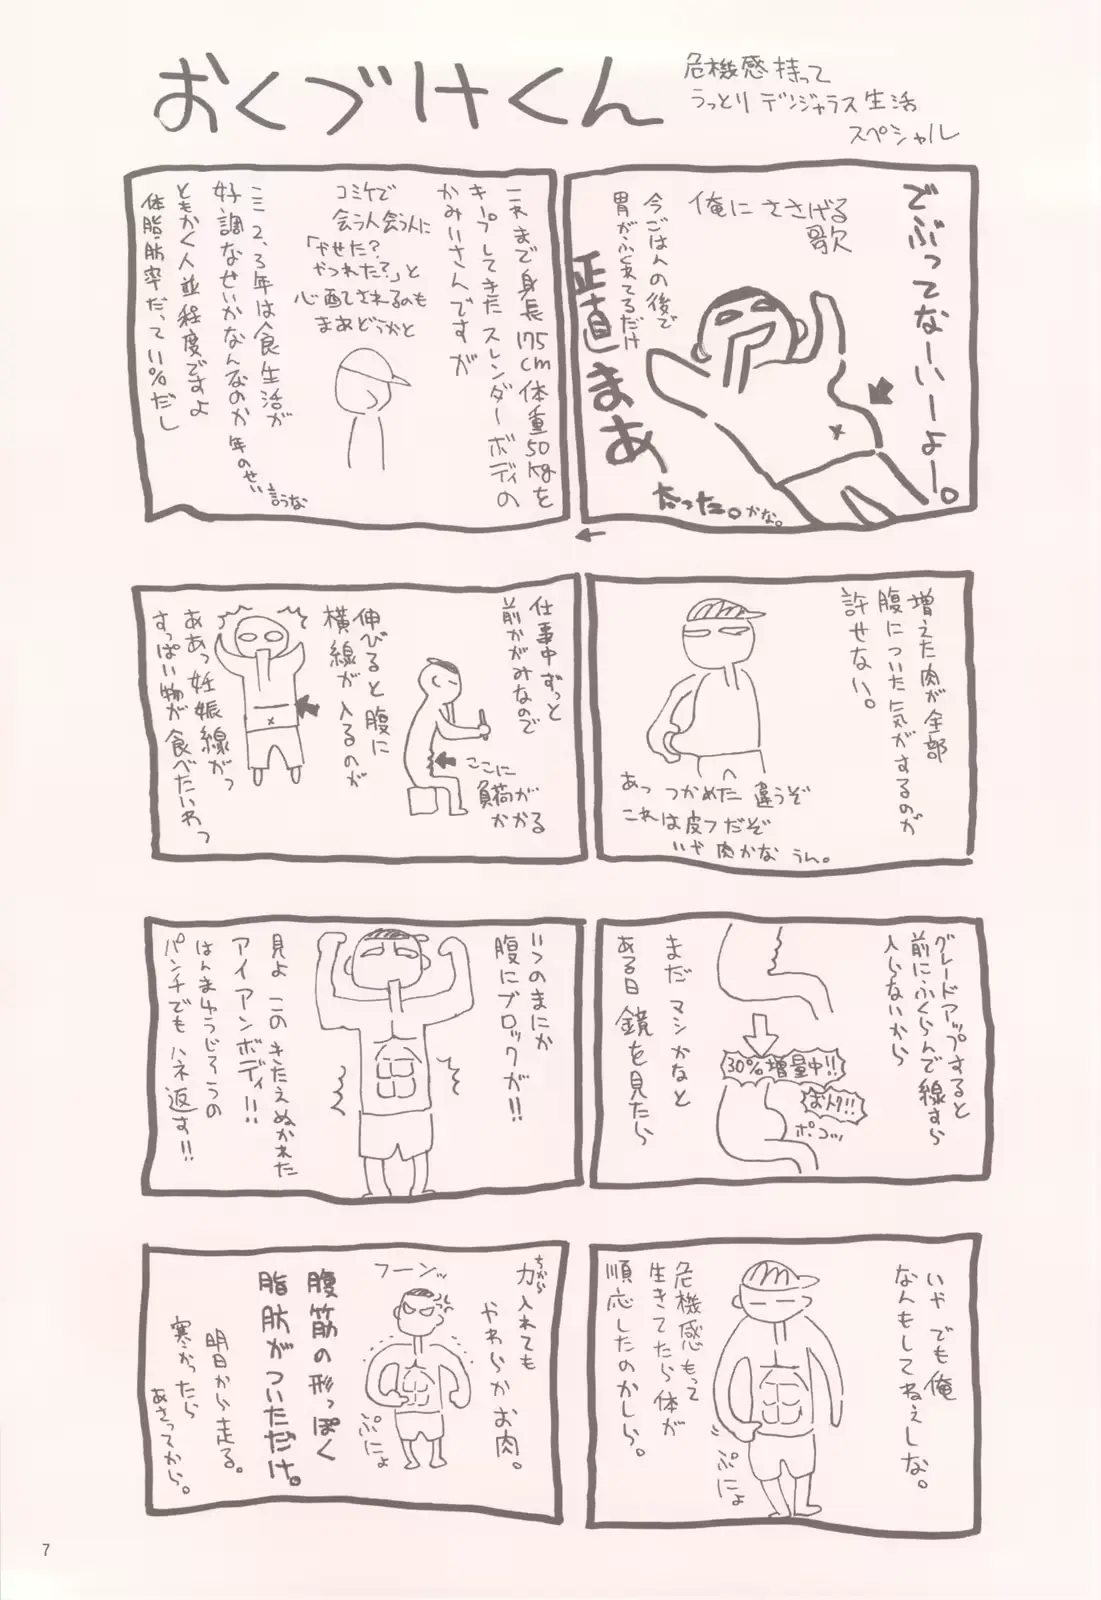 おくづけくん
危機感持って
うっとりデンジャラス生活
スペシャル
でぶってなーいーよー。
俺にささげる
歌
今ごはんの後で
胃がふくれてるだけ
正直まあ
太った。かな。
これまで身長175cm体重50kgを
キープしてきたスレンダーボディの
かみいさんですが
コミケで
会う人会う人に
「やせた?
やつれた?」と
心配されるのも
まあどうかと
ここ2、3年は食生活が
好調なせいかなんなのか年のせい
言うな
ともかく人並程度ですよ
体脂肪率だって11%だし
増えた肉が全部
腹についた気がするのが
許せない。
あっ つかめた 違うぞ
これは皮フだぞ
いや 肉かな うん。
仕事中ずっと
前かがみなので
ここに
負荷が
かかる
伸びると腹に
横線が入るのが
ああっ妊娠線がっ
すっぱい物が食べたいわっ
グレードアップすると
前にふくらんで線すら
入らないから
30%増量中!!
おトク!!
ポコッ
まだマシかなと
ある日鏡を見たら
いつのまにか
腹にブロックが!!
見よ このきたえぬかれた
アイアンボディ!!
はんまゆうじろうの
パンチでもハネ返す!!
いや でも俺
なんもしてねぇしな。
ぷにょ
危機感もって
生きてたら体が
順応したのかしら。
ちから
力入れても
やわらかお肉。
フーンッ
ぷにょ
腹筋の形っぽく
脂肪がついただけ。
明日から走る。
寒かったら
あさってから。
7